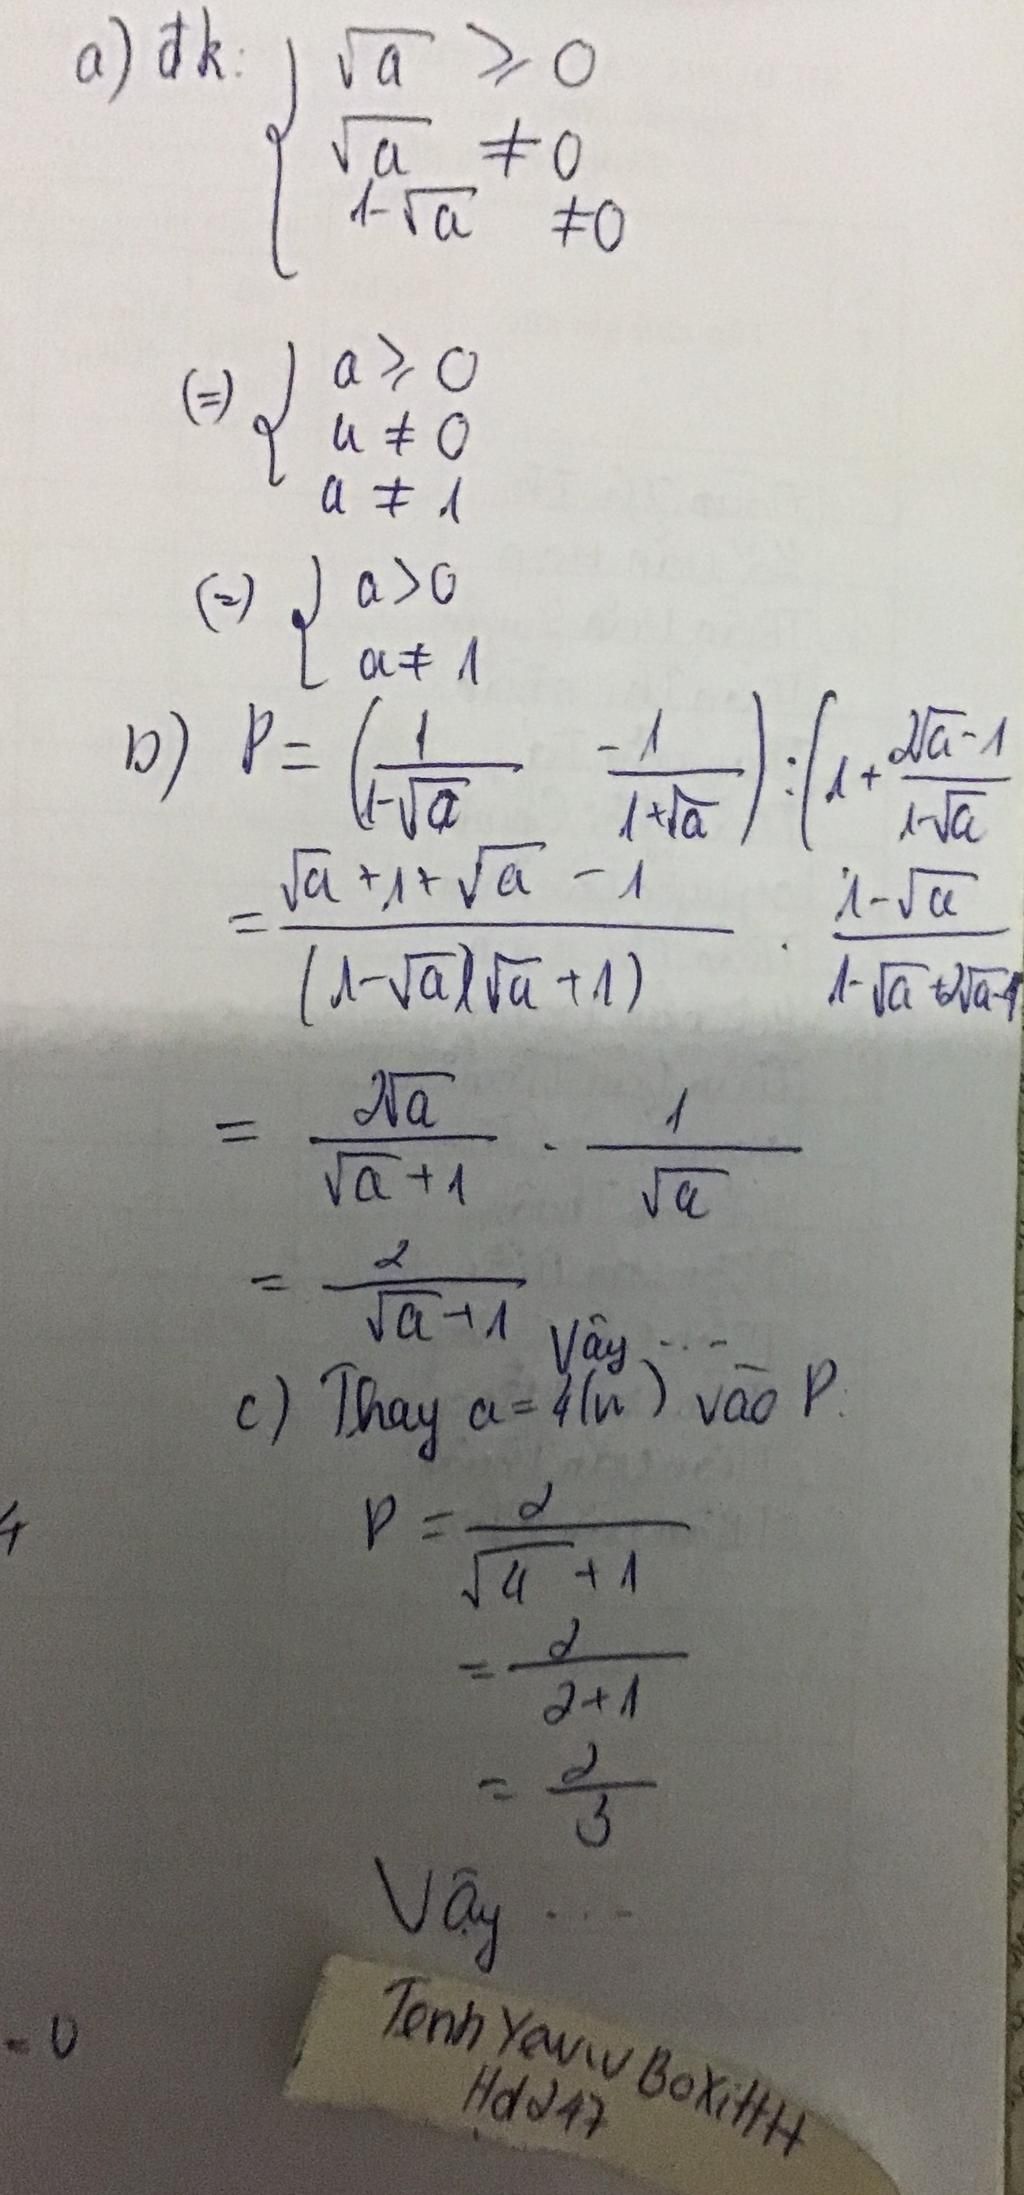 a) đk: { √a ≥ 0
√a ≠ 0
1-√a ≠0
(=) { a ≥ 0
a ≠ 0
a ≠ 1
(=) { a>0
a≠ 1
b) P = (1/(1-√a) -1/(1+√a)) : (1 + (2√a-1)/(1-√a)
= (√a +1+ √a - 1)/((1-√a)(√a +1)) . (1-√a)/(1-√a+2√a-1
= 2√a/(√a+1) . 1/√a
= 2/(√a+1)
Vậy ...
c) Thay a = 4(n) vào P:
4
P = 2/(√4 +1)
= 2/(2+1)
= 2/3
Vậy ...
= 0
Hd247